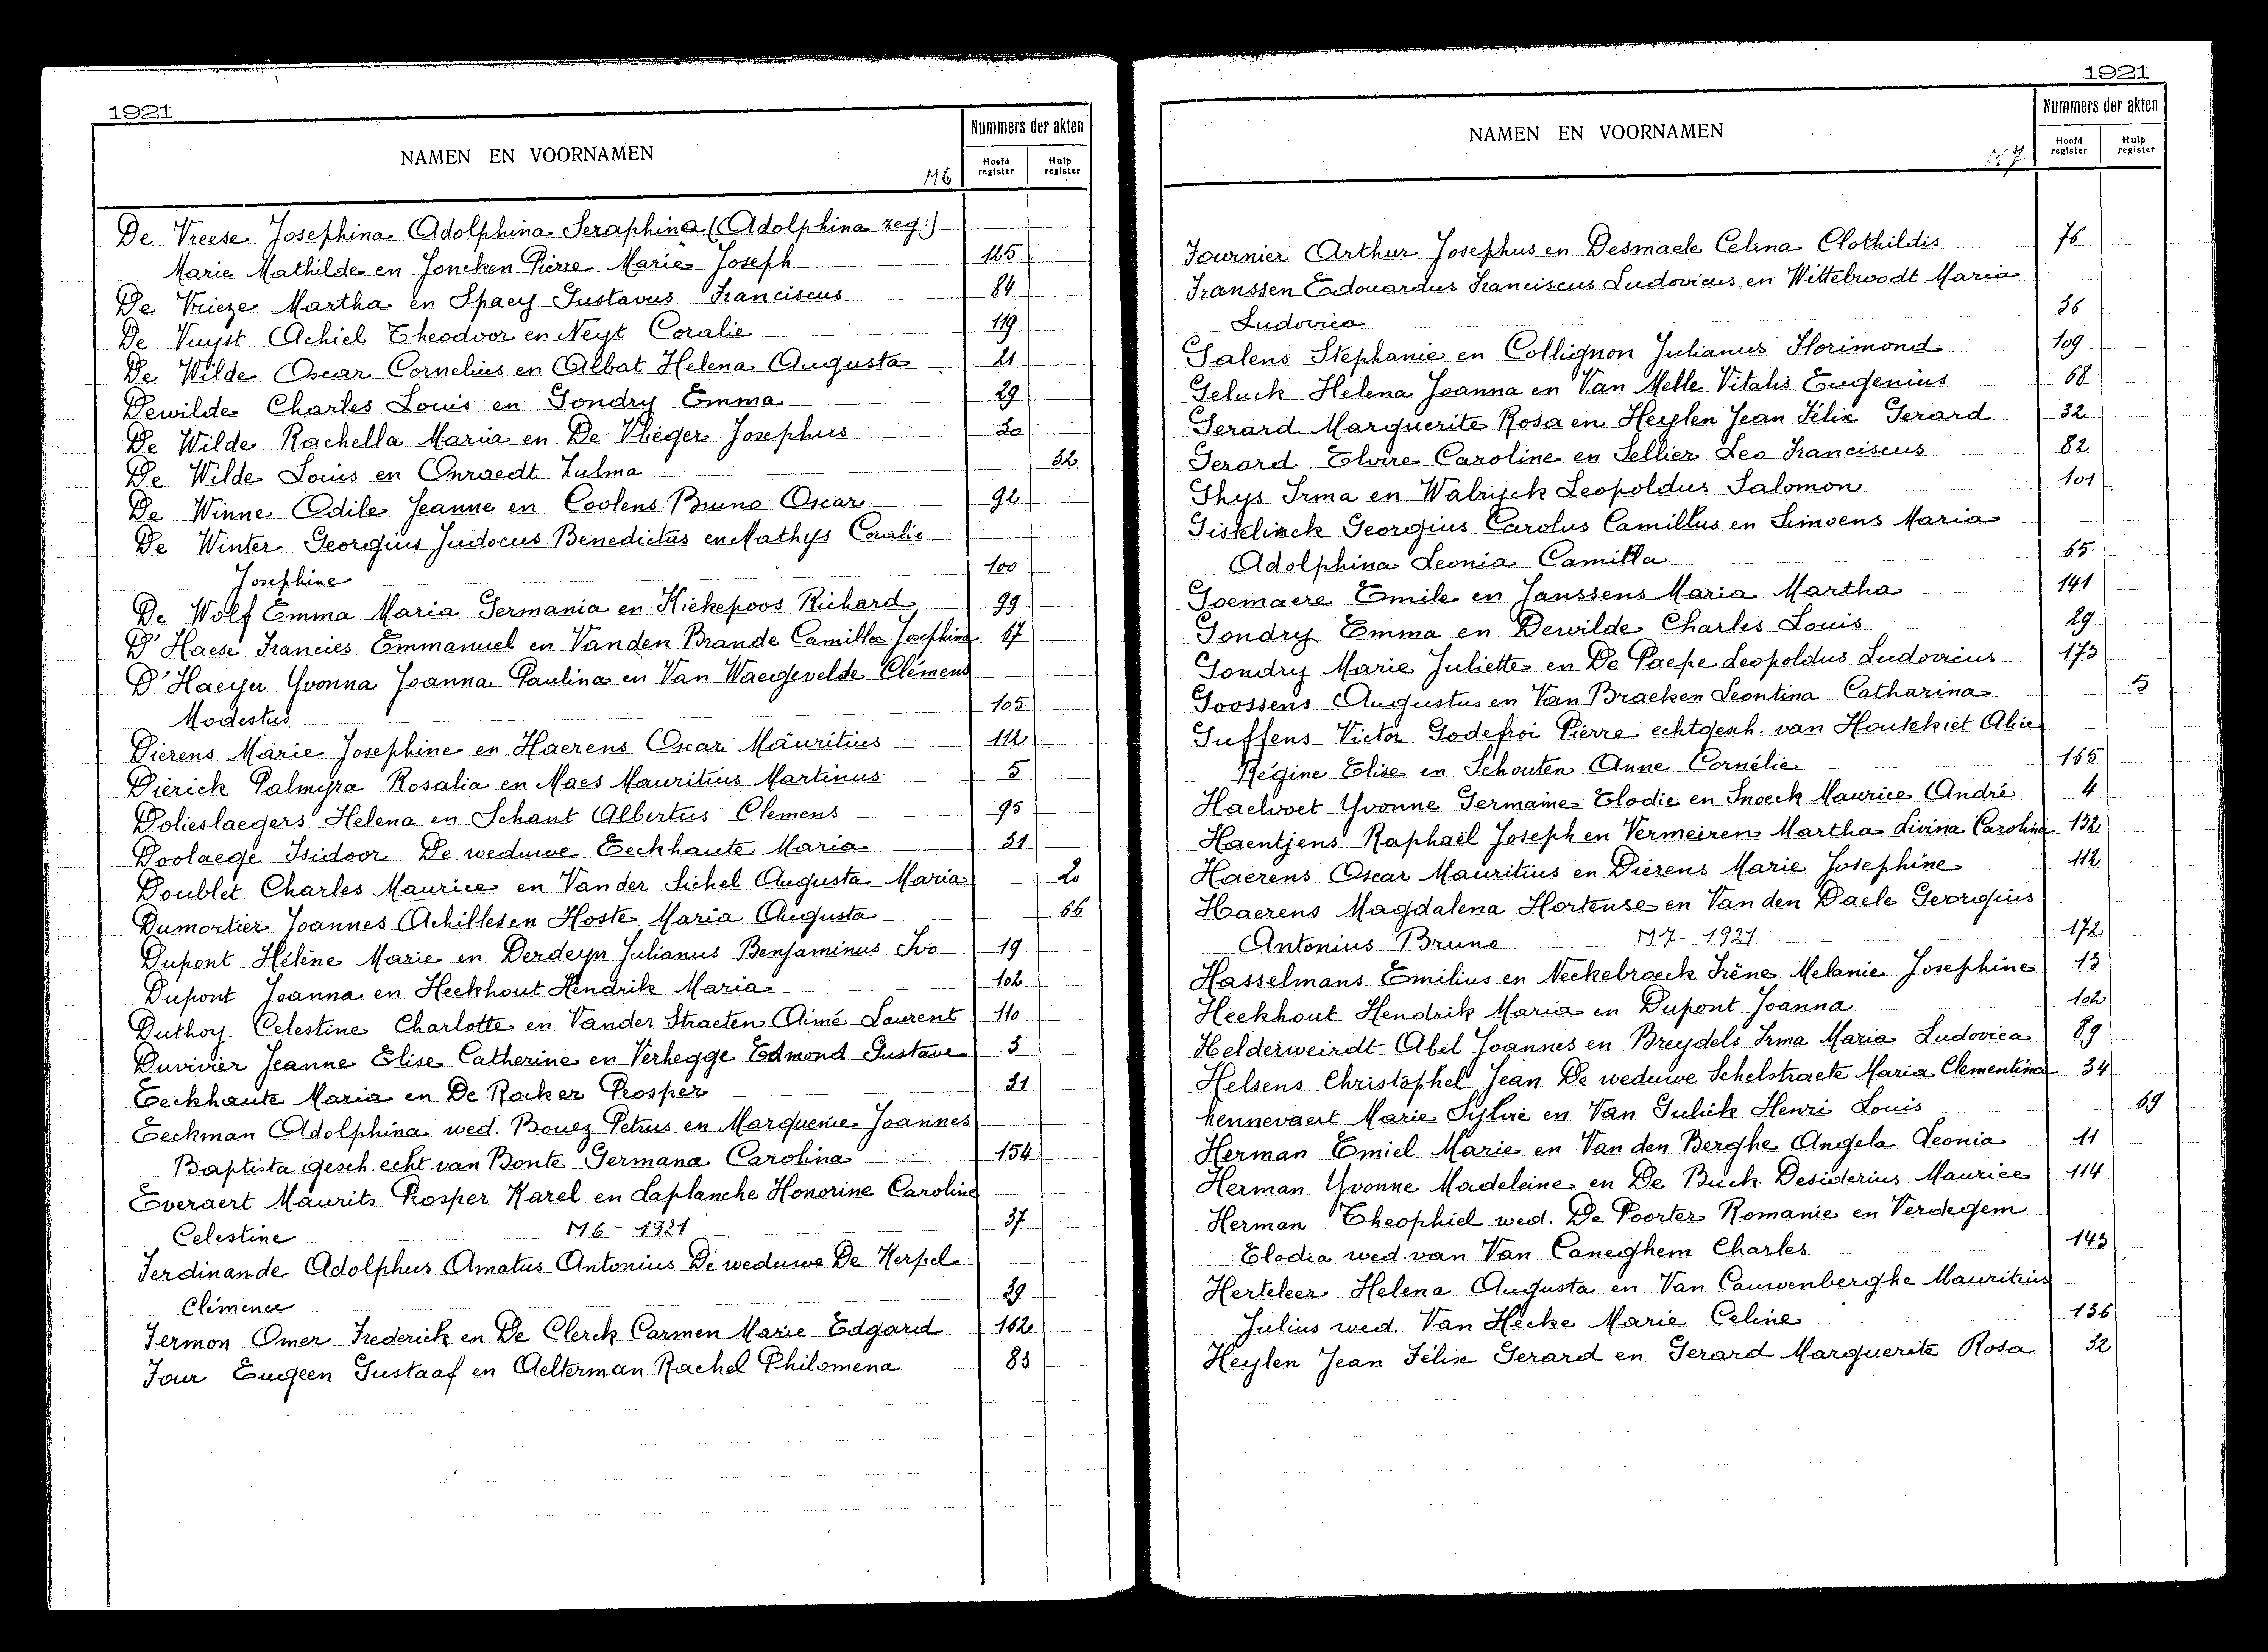 1921
NAMEN EN VOORNAMEN
M6
Nummers der akten
Hoofd register
Hulp register
De Vreese Josephina Adolphina Seraphina (Adolphina zeg:)
Marie Mathilde en Joncken Pierre Marie Joseph 125
De Vrieze Martha en Spaey Gustavus Franciscus 84
De Vuyst Achiel Theodoor en Neyt Coralie 119
De Wilde Oscar Cornelius en Albat Helena Augusta 21
Dewilde Charles Louis en Gondry Emma 29
De Wilde Rachella Maria en De Vlieger Josephus 30
De Wilde Louis en Onraedt Zulma 52
De Winne Odile Jeanne en Coolens Bruno Oscar 92
De Winter Georgius Judocus Benedictus en Mathys Coralie
Josephine 100
De Wolf Emma Maria Germania en Kiekepoos Richard 99
D'Haese Francies Emmanuel en Vanden Brande Camilla Josephina 67
D'Haeyer Yvonna Joanna Paulina en Van Waeyevelde Clémens
Modestus 105
Dierens Marie Josephine en Haerens Oscar Mauritius 112
Dierick Palmyra Rosalia en Maes Mauritius Martinus 5
Dolieslaegers Helena en Schaut Albertus Clemens 95
Doolaege Isidoor De weduwe Eeckhaute Maria 31
Doublet Charles Maurice en Vander Sichel Augusta Maria 20
Dumortier Joannes Achilles en Hoste Maria Augusta 66
Dupont Hélène Marie en Derdeyn Julianus Benjaminus Ivo 19
Dupont Joanna en Heckhout Hendrik Maria 102
Duthoy Celestine Charlotte en Vander Straeten Aimé Laurent 110
Duvivier Jeanne Elise Catherine en Verhegge Edmond Gustave 3
Eeckhaute Maria en De Rocker Prosper 31
Eeckman Adolphina wed. Bouez Petrus en Marquenie Joannes
Baptista gesch. echt. van Bonte Germana Carolina 154
Everaert Maurits Prosper Karel en Laplanche Honorine Caroline
Celestine M6 - 1921 37
Ferdinande Adolphus Amatus Antonius De weduwe De Kerpel
Clémence 39
Fermon Omer Frederick en De Clerck Carmen Marie Edgard 162
Four Eugeen Gustaaf en Aelterman Rachel Philomena 83
1921
NAMEN EN VOORNAMEN
M7
Nummers der akten
Hoofd register
Hulp register
Fournier Arthur Josephus en Desmaele Celina Clothildis 76
Franssen Edouardus Franciscus Ludovicus en Wittebroodt Maria
Ludovica 36
Galens Stephanie en Collignon Julianus Florimond 109
Geluck Helena Joanna en Van Melle Vitalis Eugenius 68
Gerard Marguerite Rosa en Heylen Jean Félix Gerard 32
Gerard Elvire Caroline en Sellier Leo Franciscus 82
Ghys Irma en Walryck Leopoldus Salomon 101
Gistelinck Georgius Carolus Camillus en Simoens Maria
Adolphina Leonia Camilla 65
Goemaere Emile en Janssens Maria Martha 141
Gondry Emma en Dewilde Charles Louis 29
Gondry Marie Juliette en De Paepe Leopoldus Ludovicus 173
Goossens Augustus en Van Braeken Leontina Catharina 5
Guffens Victor Godefroi Pierre echtgesch. van Houtekiet Alice
Régine Elise en Schouten Anne Cornélie 165
Haelvoet Yvonne Germaine Elodie en Snoeck Maurice André 4
Haentjens Raphaël Joseph en Vermeiren Martha Livina Carolina 132
Haerens Oscar Mauritius en Dierens Marie Josephine 112
Haerens Magdalena Hortense en Van den Daele Georgius
Antonius Bruno M7 - 1921 172
Hasselmans Emilius en Neckebroeck Irène Melanie Josephine 13
Heckhout Hendrik Maria en Dupont Joanna 102
Helderweirdt Abel Joannes en Breydels Irma Maria Ludovica 89
Helsens Christophel Jean De weduwe Schelstraete Maria Clementina 34
Hennevaert Marie Sylvie en Van Gulick Henri Louis 69
Herman Emiel Marie en Van den Berghe Angela Leonia 11
Herman Yvonne Madeleine en De Buck Desiderius Maurice 114
Herman Theophiel wed. De Poorter Romanie en Verdegem
Elodia wed. van Van Caneghem Charles 143
Herteleer Helena Augusta en Van Cauwenberghe Mauritius
Julius wed. Van Hecke Marie Celine 136
Heylen Jean Félix Gerard en Gerard Marguerite Rosa 32